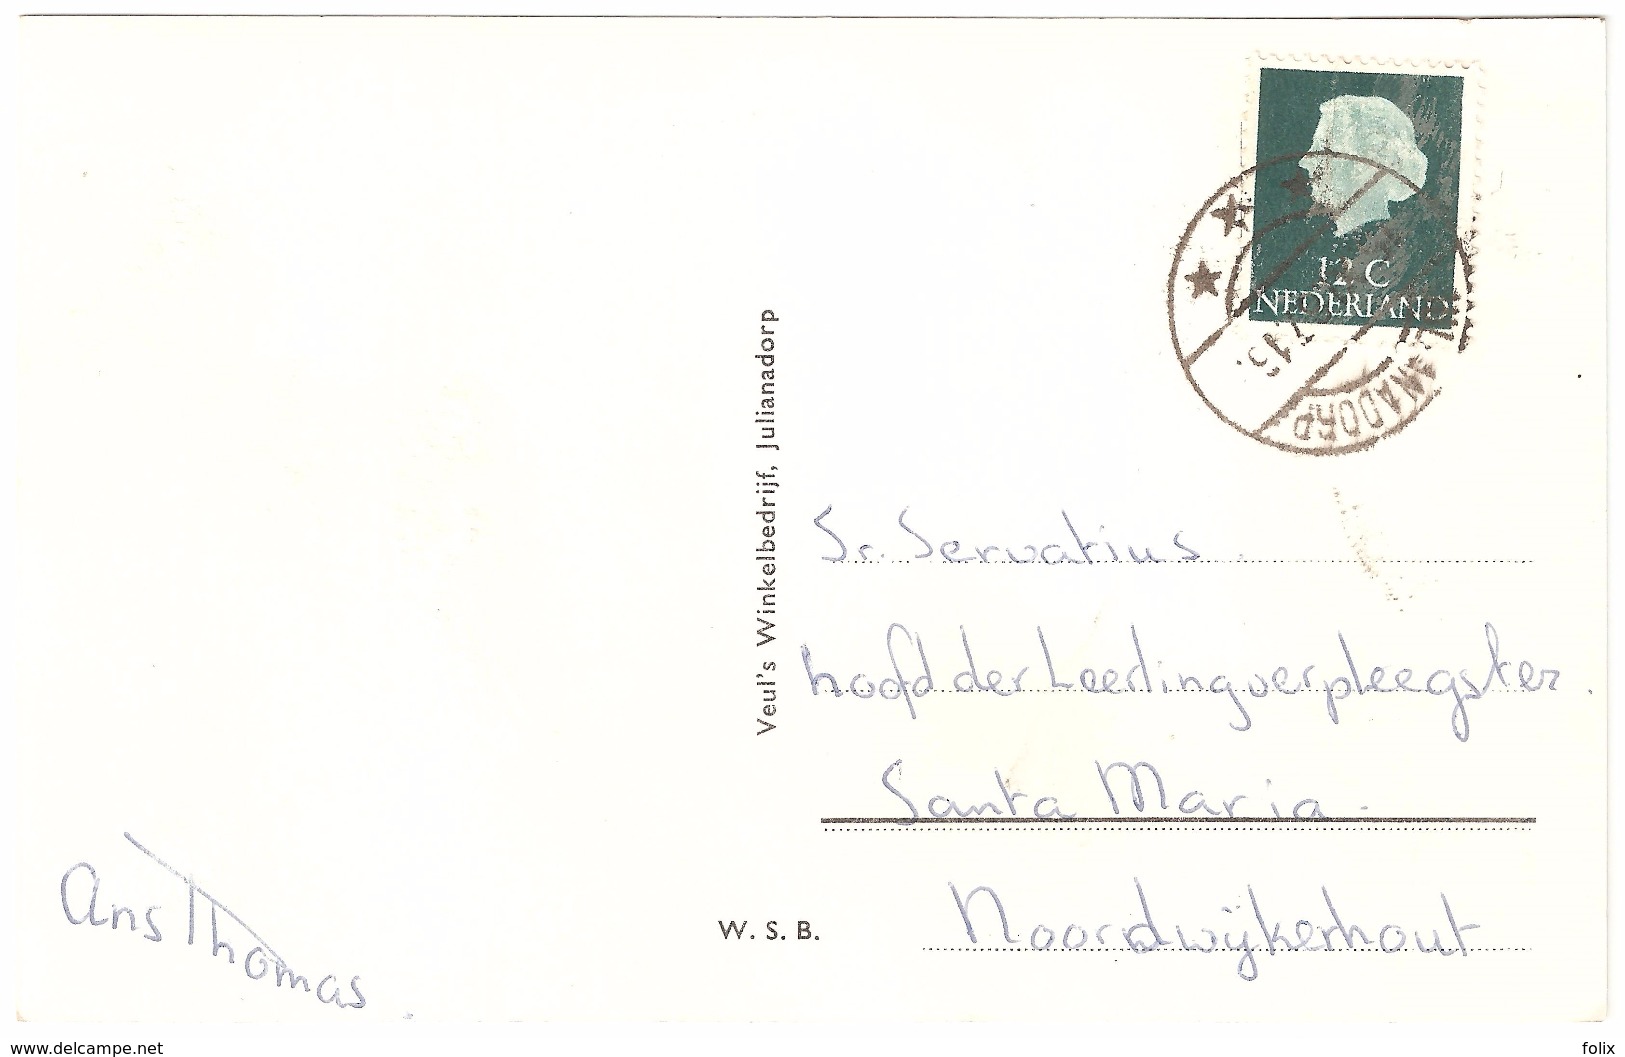 12 C
NEDERLAND
Veul's Winkelbedrijf, Julianadorp
Sr. Servatius
hoofd der Leerlingverpleegster
Santa Maria
Noordwijkerhout
Ans Thomas
W. S. B.
www.delcampe.net
folix